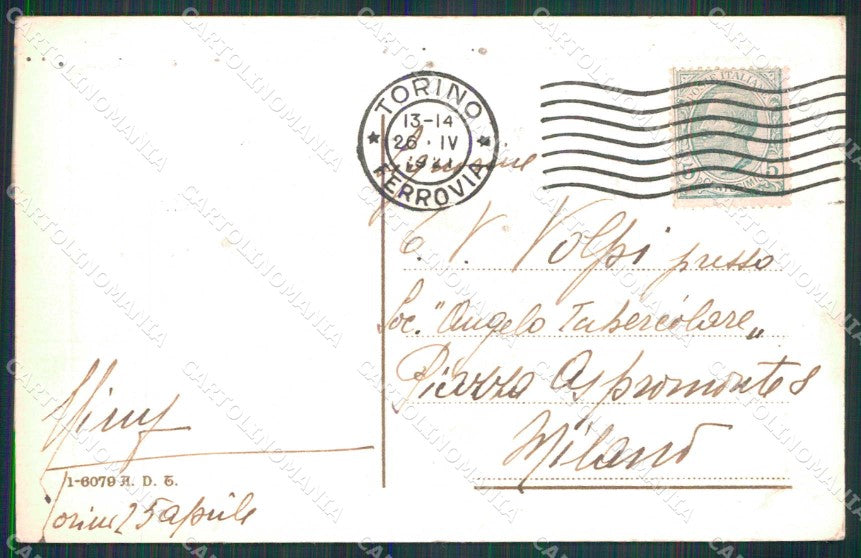 TORINO
13-14
26 · IV
FERROVIA
POSTE ITALIANE
5 5
V. Volpi presso
Soc. "Angelo Tubercolare"
Piazza Aspromonte 8
Milano
1-6079 A. D. T.
Torino 25 aprile
CARTOLINOMANIA